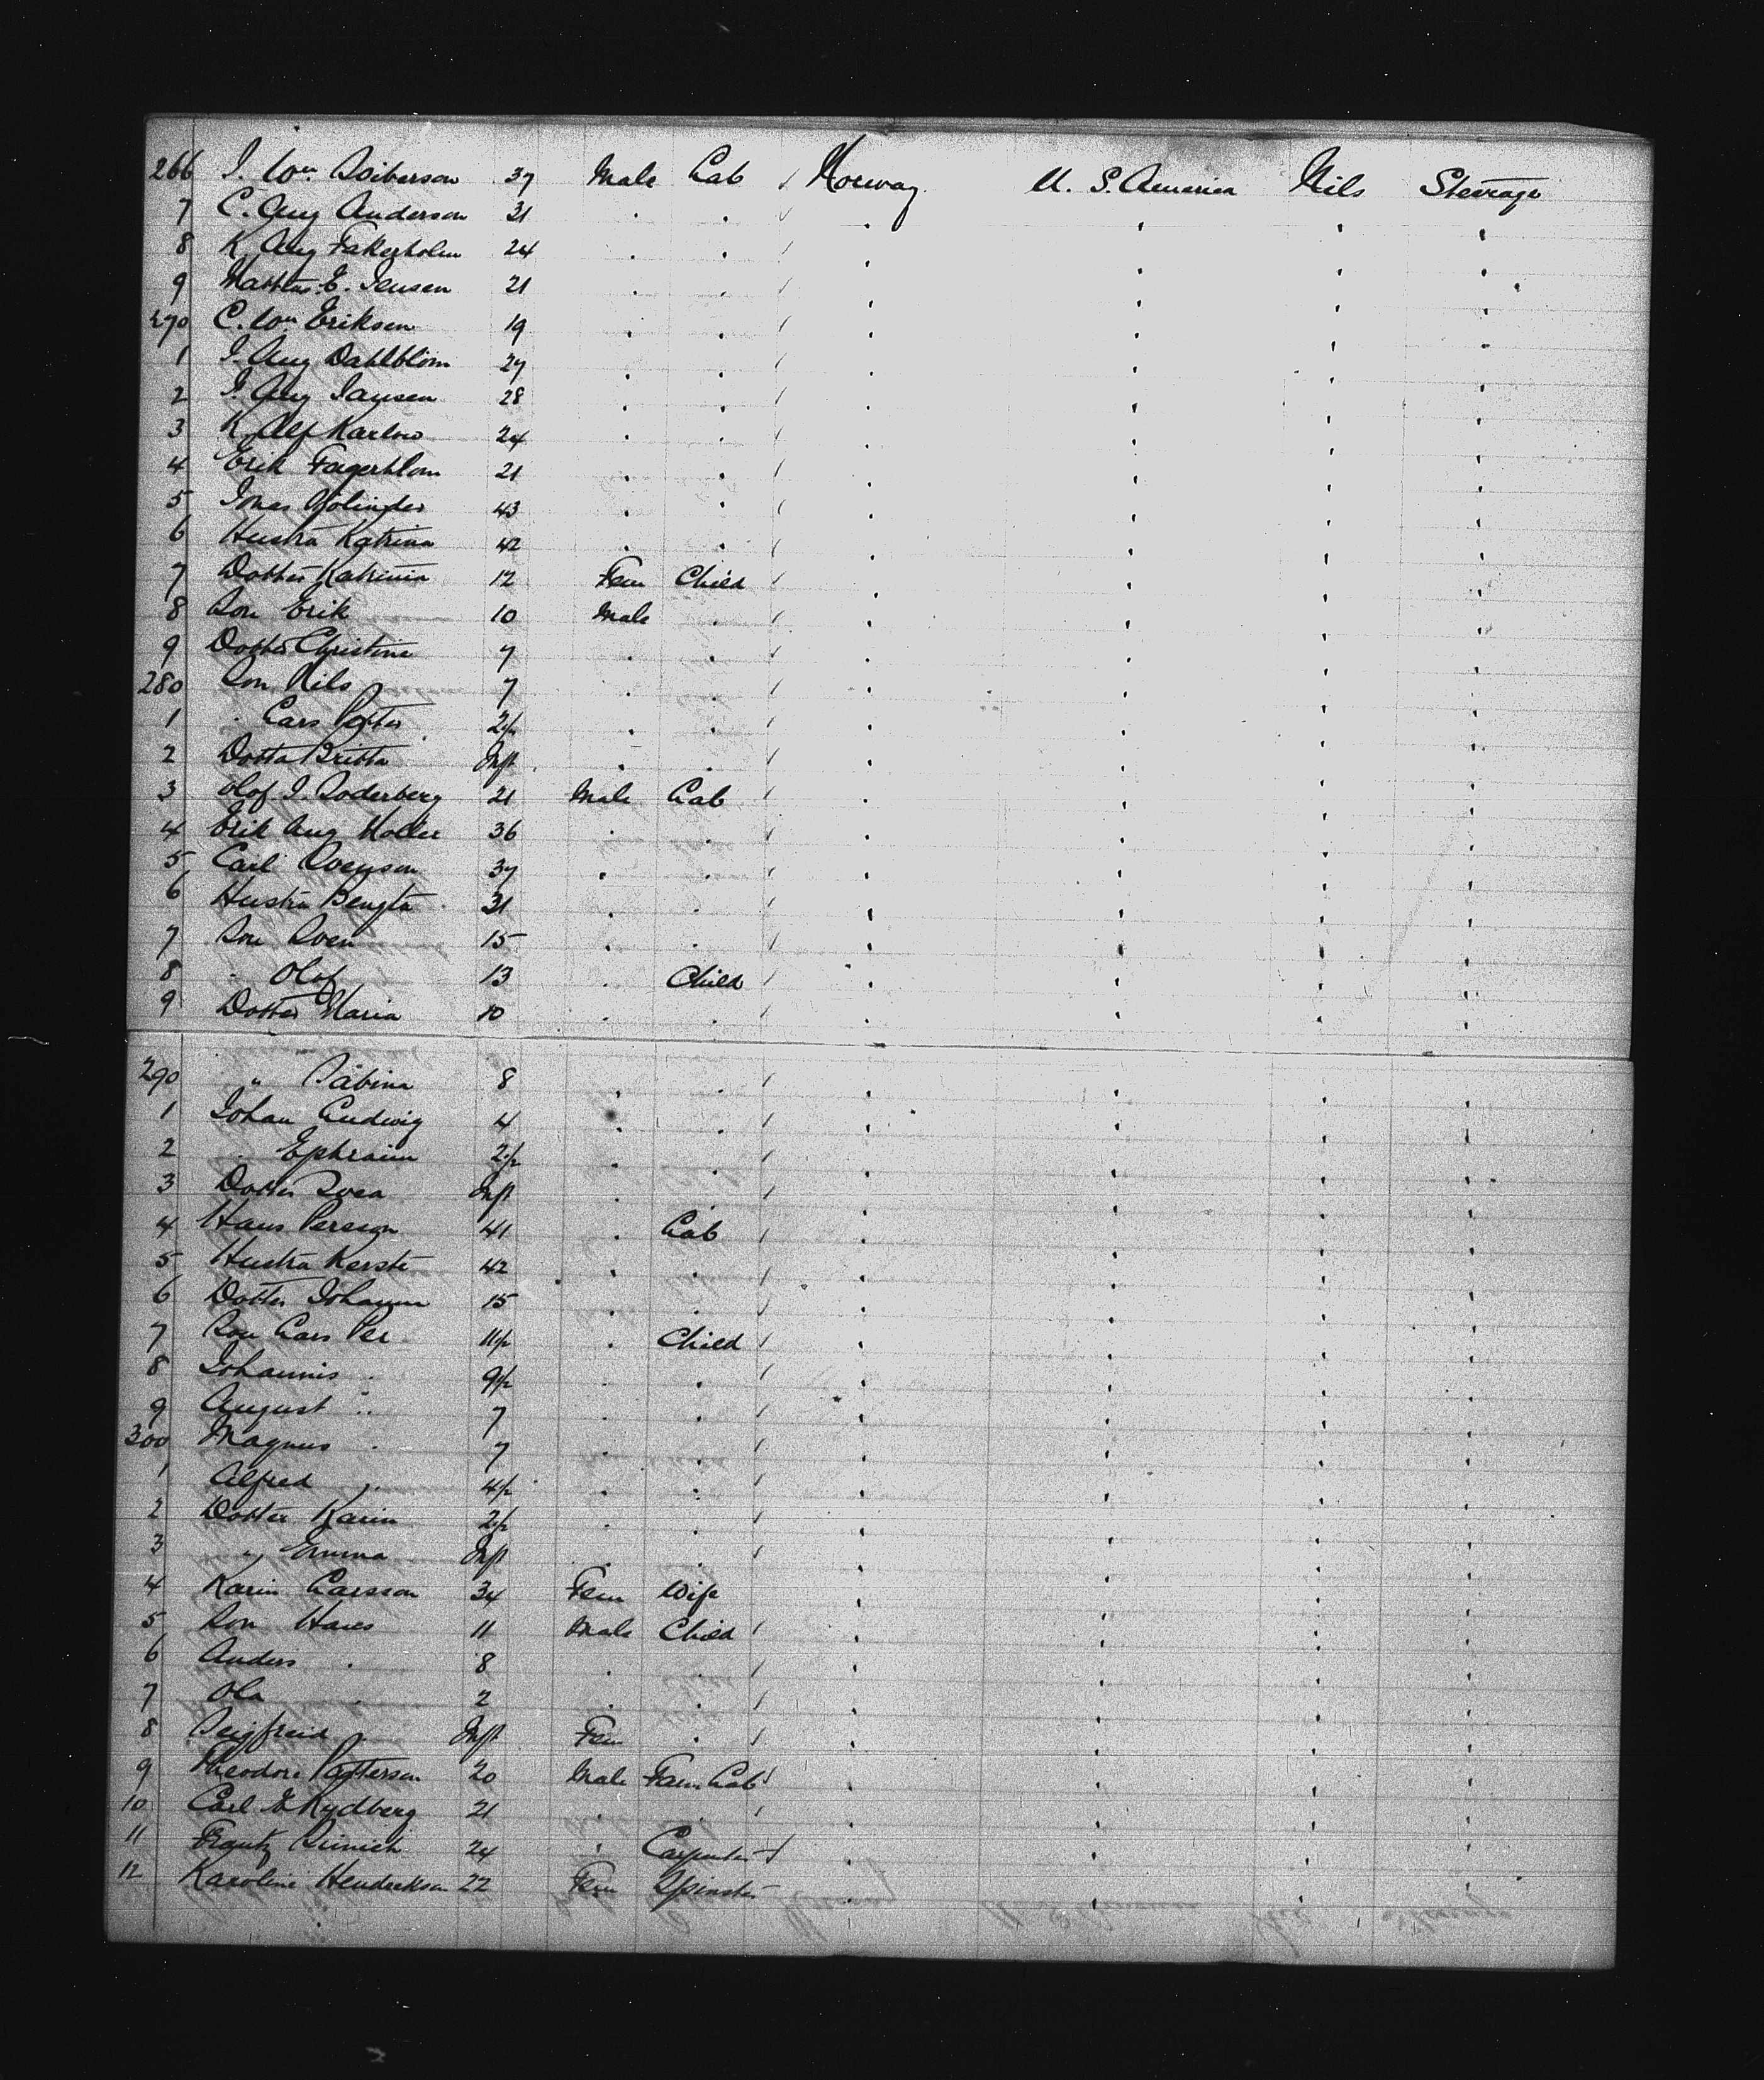 266 J. Wm Soiberson 37 Male Lab / Norway U. S. America Nils Steerage
7 C. Aug Anderson 31 . . / . . . .
8 K Aug Fakerholm 24 . . / . . . .
9 Mathias E. Jensen 21 . . / . . . .
270 C. Wm Eriksen 19 . . / . . . .
1 J. Aug Dahlblom 27 . . / . . . .
2 J. Aug Jansen 28 . . / . . . .
3 K Alf Karlow 24 . . / . . . .
4 Erik Fagerblom 21 . . / . . . .
5 Jonas 43 . . / . . . .
6 Hustra Katrina 42 . . / . . . .
7 Dotter Katrina 12 Fem Child / . . . .
8 Son Erik 10 Male . / . . . .
9 Dotter Christine 7 . . / . . . .
280 Son Nils 7 . . / . . . .
1 . Lars Petter 2/2 . . / . . . .
2 Dotta Britta Inft . . / . . . .
3 Olof J. Soderberg 21 Male Lab / . . . .
4 Erik Aug Moller 36 . . / . . . .
5 Carl Svenson 37 . . / . . . .
6 Hustra Bengta 31 . . / . . . .
7 Son Sven 15 . . / . . . .
8 . Olof 13 . Child / . . . .
9 Dotter Maria 10 . . . . . .
290 " Sabina 8 . . / . . . .
1 Johan Ludwig 4 . . / . . . .
2 . Ephraim 2/2 . . / . . . .
3 Dotter Svea Inft . . / . . . .
4 Hans Person 41 . Lab / . . . .
5 Hustra Kerste 42 . . / . . . .
6 Dotter Johanna 15 . . / . . . .
7 Son Lars Per 11/2 . Child / . . . .
8 Johannis . 9/2 . . / . . . .
9 August " 7 . . / . . . .
300 Magnus . 7 . . / . . . .
1 Alfred " 4/2 . . / . . . .
2 Dotter Karin 2/2 . . / . . . .
3 " Emma Inft . . / . . . .
4 Karin Larsson 34 Fem Wife . . . .
5 Son Hans 11 Male Child / . . . .
6 Anders . 8 . . / . . . .
7 Ola . 2 . . / . . . .
8 Seigfreid . Inft Fem . / . . . .
9 Theodore Patterson 20 Male Farm Lab / . . . .
10 Carl E Rydberg 21 . . / . . . .
11 Frantz 24 . Carpenter / . . . .
12 Karoline Hendrekson 22 Fem Spinster . . . .